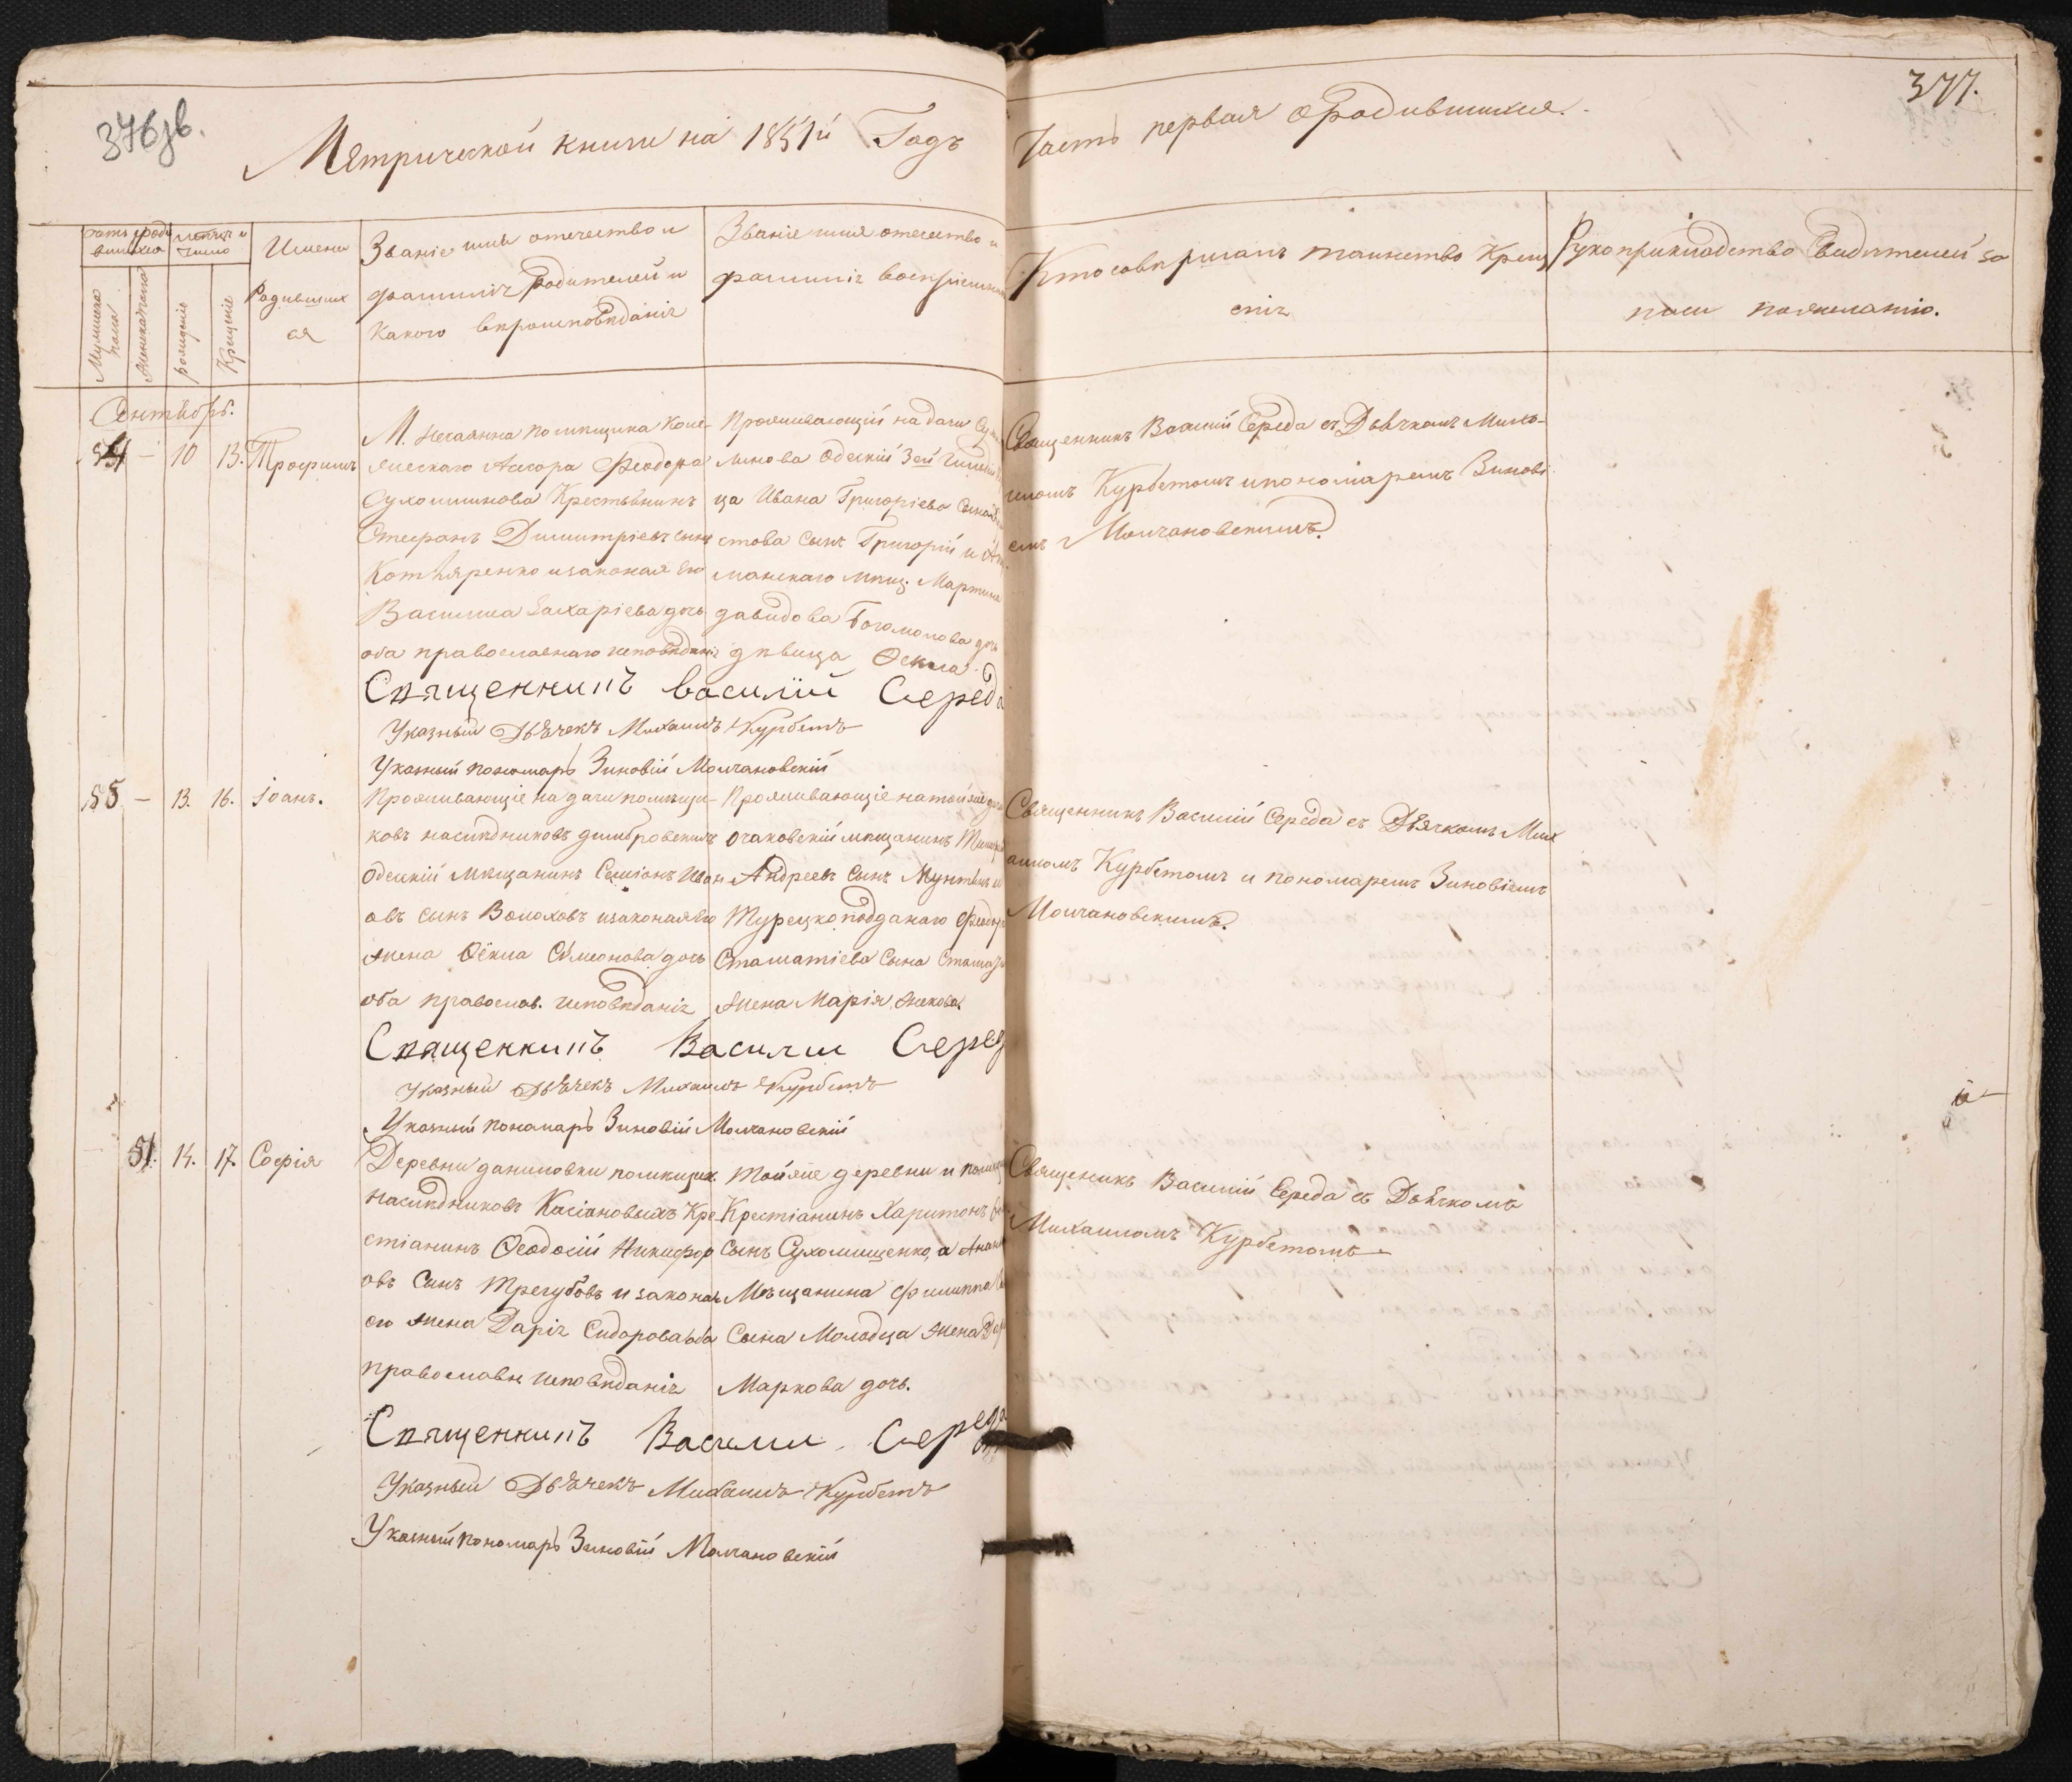 376зв.
377.
Метрической книги на 1851й Годъ
Часть первая о родившихся.
Мужеска пола
Женска
рожденіе
Крещеніе
Имена
Родивших
ся
Званіе имя отечество и
фамилія родителей и
какого вѣроисповѣданія
Званіе имя отечество и
фамилія воспріемни
Кто совершалъ таинство Крещ
енія
Рукоприкладство свидѣтелей за
писи по желанію.
Сентябрь.
54 — 10 13. Трофимъ
М. Нечаянна помѣщика Коле-
жескаго Асесора Феодора
Сухомлинова Крестьянинъ
Стефанъ Димитріевъ сынъ
Котляренко и законая его
Василиса Захаріева дочь
оба православнаго исповѣданія
Проживающій на дачи
линова Одескій 3ей
ца Ивана Григоріева сына
стова сынъ Григорій и
манскаго мѣщ. Мартина
Давидова Богомолова дочь
дѣвица Ѳекла.
Священникъ Василій Середа съ Дьячкомъ Миха-
иломъ Курбетомъ и пономаремъ Зинові
емъ Молчановскимъ.
Священникъ Василій Середа
Указный Дьячекъ Михаилъ Курбетъ
Указный пономарь Зиновій Молчановскій
55 — 13. 16. Іоанъ.
Проживающіе на дачи помѣщи-
ковъ наслѣдниковъ Димбровскихъ
Одескій мѣщанинъ Семіонъ Иван
овъ сынъ Волоховъ и законая его
жена Ѳекла Симеонова дочь
оба православ. исповѣданія
Проживающіе на той же дачи
Очаковскій мѣщанинъ
Андреевъ сынъ Мунтянъ и
Турецкоподданаго Феодора
Стаматіева сына
жена Марія Якова.
Священникъ Василій Середа съ Дьячкомъ Мих
аиломъ Курбетомъ и пономаремъ Зиновіемъ
Молчановскимъ.
Священникъ Василій Серед
Указный Дьячекъ Михаилъ Курбетъ
Указный пономарь Зиновій Молчановскій
51. 14. 17. Софія
Деревни Даниловки помѣщик.
наслѣдниковъ Касіановыхъ Кре
стіанинъ Ѳеодосій Никифор
овъ сынъ Трегубовъ и законая
его жена Дарія Сидорова оба
православн исповѣданія
Той же деревни и помѣщ
Крестіанинъ Харитонъ
сынъ Сухомищенко, а Анан
Мѣщанина Филиппа
сына Молодца жена
Маркова дочь.
Священикъ Василій Середа съ Дьячкомъ
Михаиломъ Курбетомъ.
Священникъ Василій Середа
Указный Дьячекъ Михаилъ Курбетъ
Указный пономарь Зиновій Молчановскій